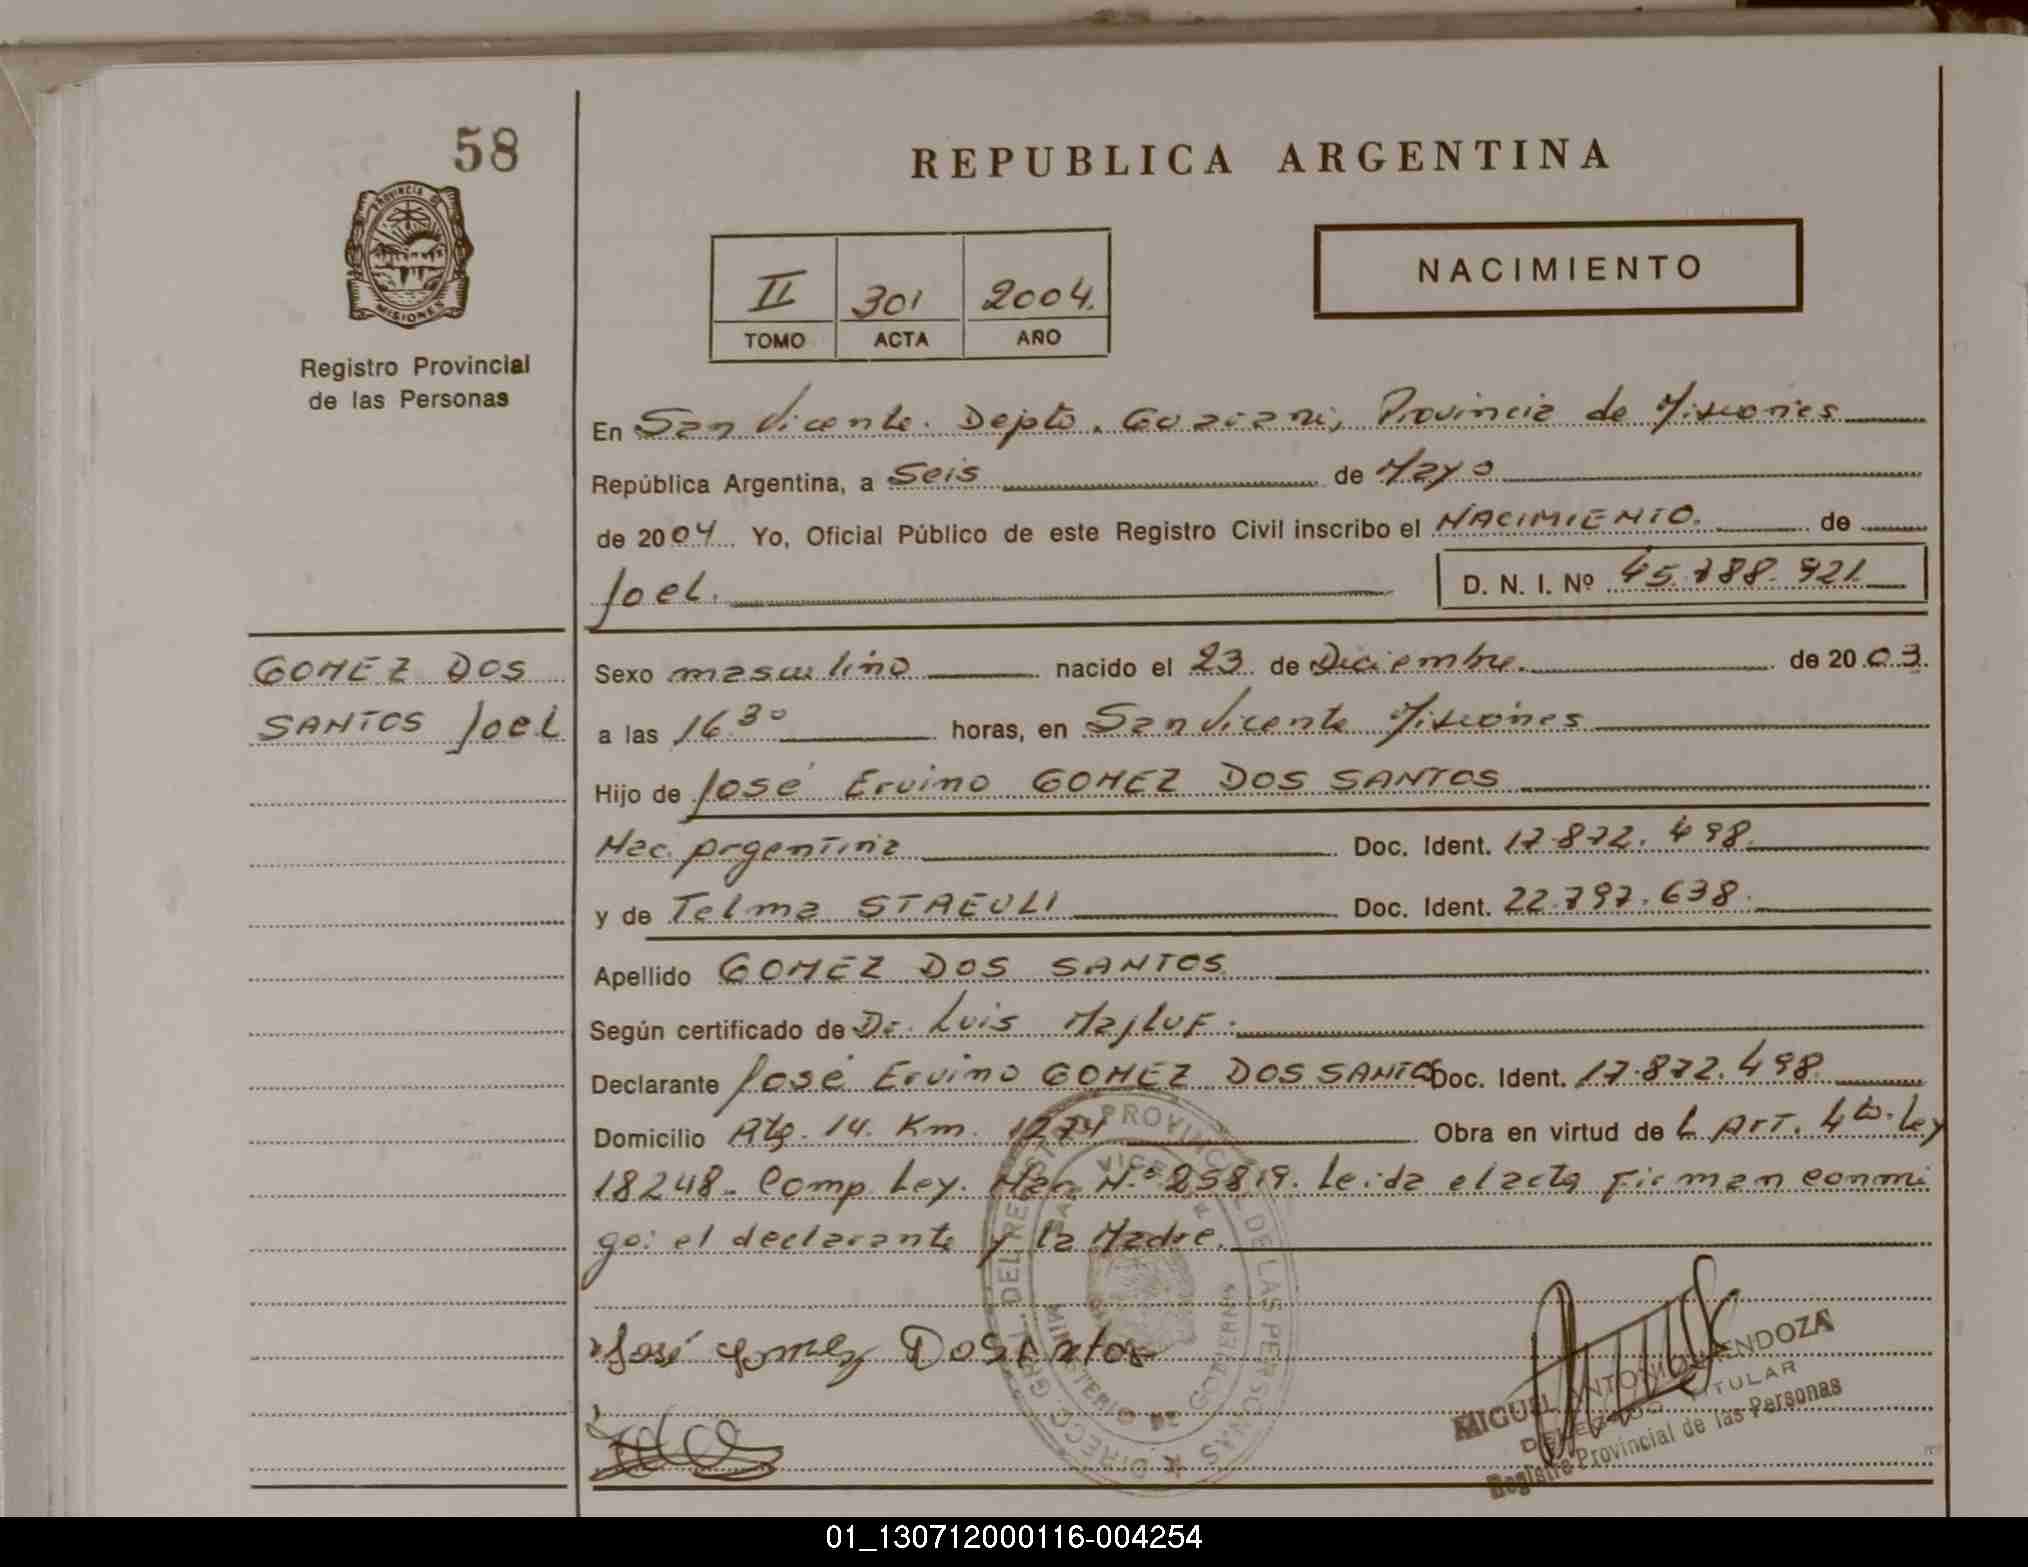 58
REPUBLICA ARGENTINA
PROVINCIA DE
MISIONES
Registro Provincial
de las Personas
II 301 2004.
TOMO ACTA AÑO
NACIMIENTO
En San Vicente. Depto. Guarani, Provincia de Misiones
República Argentina, a Seis de Mayo
de 2004 Yo, Oficial Público de este Registro Civil inscribo el NACIMIENTO. de
Joel. D. N. I. Nº 45.788.921
GOMEZ DOS
SANTOS Joel
Sexo masculino nacido el 23 de Diciembre. de 2003.
a las 16 30 horas, en San Vicente Misiones
Hijo de José Ervino GOMEZ DOS SANTOS
Nac. Argentina Doc. Ident. 17.872.498.
y de Telma STAEULI Doc. Ident. 22.797.638.
Apellido GOMEZ DOS SANTOS
Según certificado de Dr. Luis Majluf.
Declarante José Ervino GOMEZ DOS SANTOS Doc. Ident. 17.872.498
Domicilio Rta. 14. Km. 1274 Obra en virtud del Art. 4to. Ley
18248. Comp. Ley. Nac. N.º 25819. Leida el acta firman conmi
go: el declarante y la Madre.
José Gomez DoSantos
DIRECC. GRAL. DEL REGISTRO PROVINCIAL DE LAS PERSONAS
SAN VICENTE
MINISTERIO DE GOBIERNO
MIGUEL ANTONIO MENDOZA
DELEGADO TITULAR
Registro Provincial de las Personas
01_130712000116-004254